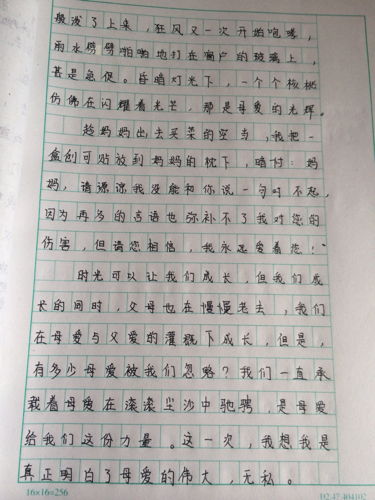 泼了上来，狂风又一次开始咆哮，
雨水劈劈啪啪地打在窗户的玻璃上，
甚是急促。昏暗灯光下，一个个核桃
仿佛在闪耀着光芒，那是母爱的光辉。
趁妈妈出去买菜的空当，我把一
盒创可贴放到妈妈的枕下，暗忖：妈
妈，请原谅我没能和你说一句对不起，
因为再多的言语也弥补不了我对您的
伤害，但请您相信，我永远爱着您！”
时光可以让我们成长，但我们成
长的同时，父母也在慢慢老去，我们
在母爱与父爱的灌溉下成长，但是，
有多少母爱被我们忽略？我们一直承
载着母爱在滚滚尘沙中驰骋，是母爱
给我们这份力量。这一次，我想我是
真正明白了母爱的伟大，无私。
16×16=256